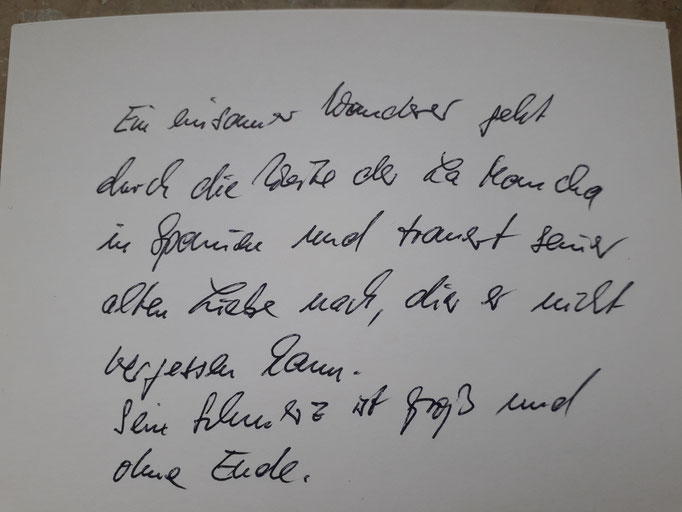 Ein einsamer Wanderer geht
durch die Weite der La Mancha
in Spanien und trauert seiner
alten Liebe nach, die er nicht
vergessen kann.
Sein Schmerz ist groß und
ohne Ende.